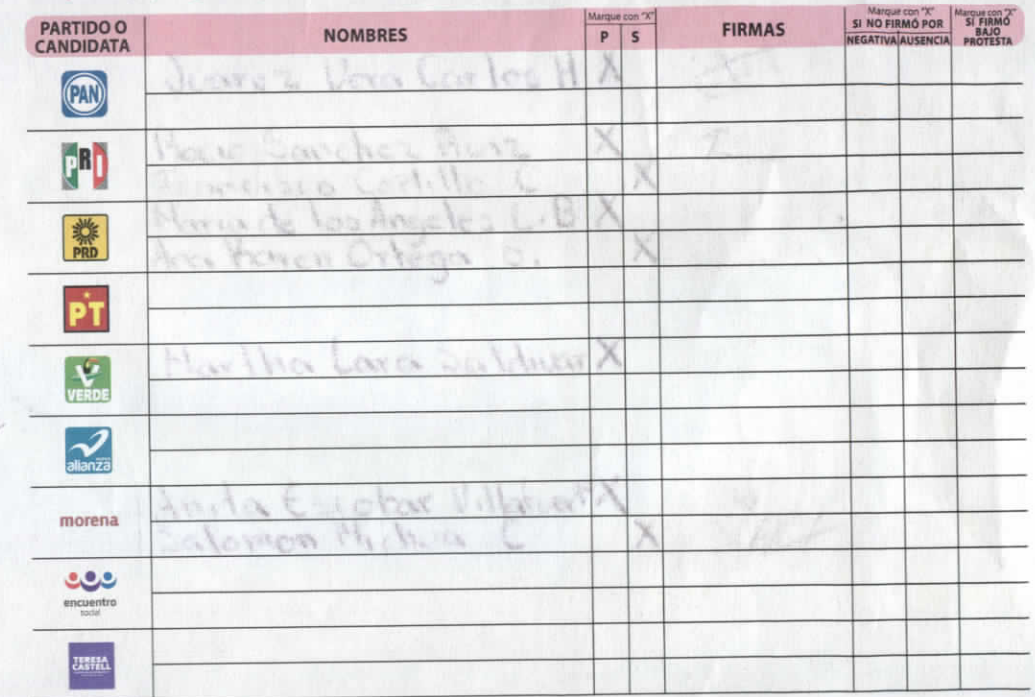 PARTIDO O CANDIDATA NOMBRES Marque con "X" P S FIRMAS Marque con "X" SI NO FIRMÓ POR NEGATIVA AUSENCIA Marque con "X" SI FIRMÓ BAJO PROTESTA
PAN Juarez Vera Carlos H X
PRI Rocio Sanchez Ruiz X
Francisco Castillo C X
PRD Maria de los Angeles L.B X
Ana Karen Ortega O. X
PT
VERDE Martha Lara Saldivar X
alianza
morena Anita Escobar X
Salomon C X
encuentro social
TERESA CASTELL